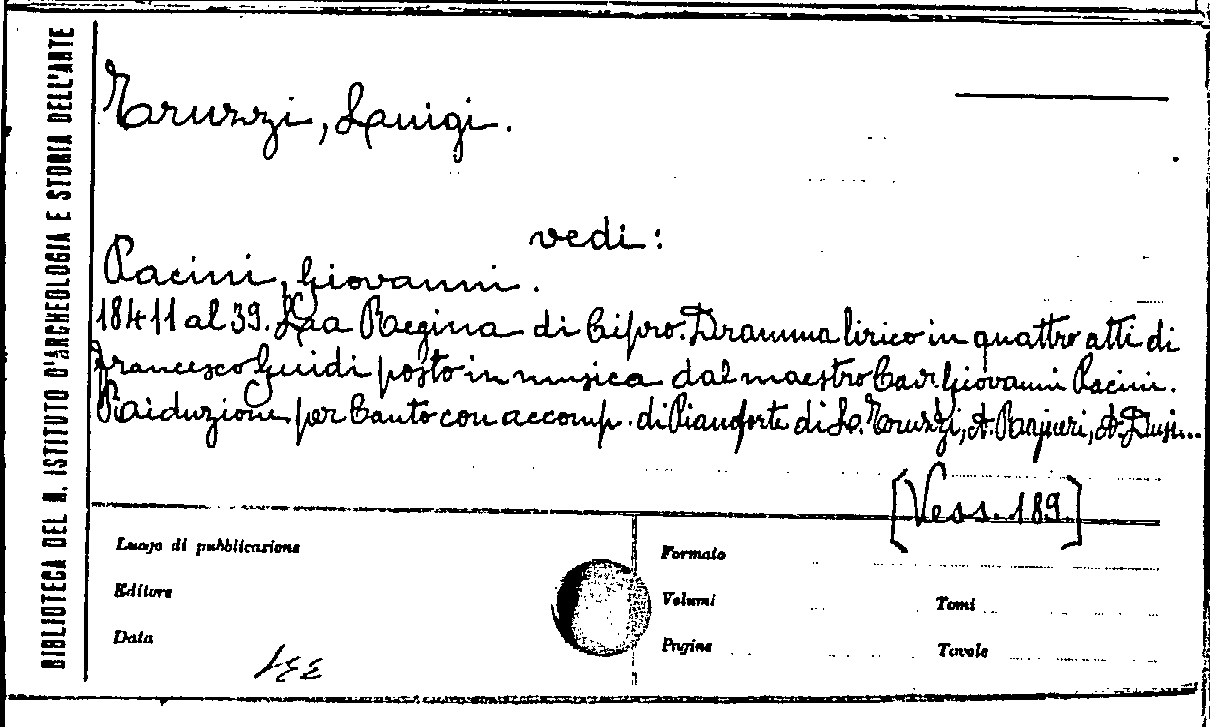 BIBLIOTECA DEL R. ISTITUTO D'ARCHEOLOGIA E STORIA DELL'ARTE
Truzzi, Luigi.
vedi:
Pacini, Giovanni.
18411 al 39. La Regina di Cipro. Dramma lirico in quattro atti di
Francesco Guidi posto in musica dal maestro Cav. Giovanni Pacini.
Riduzione per Canto con accomp. di Pianoforte di L. Truzzi, A.
[Vess. 189]
Luogo di pubblicazione
Formato
Editore
Volumi
Tomi
Data
Pagine
Tavole